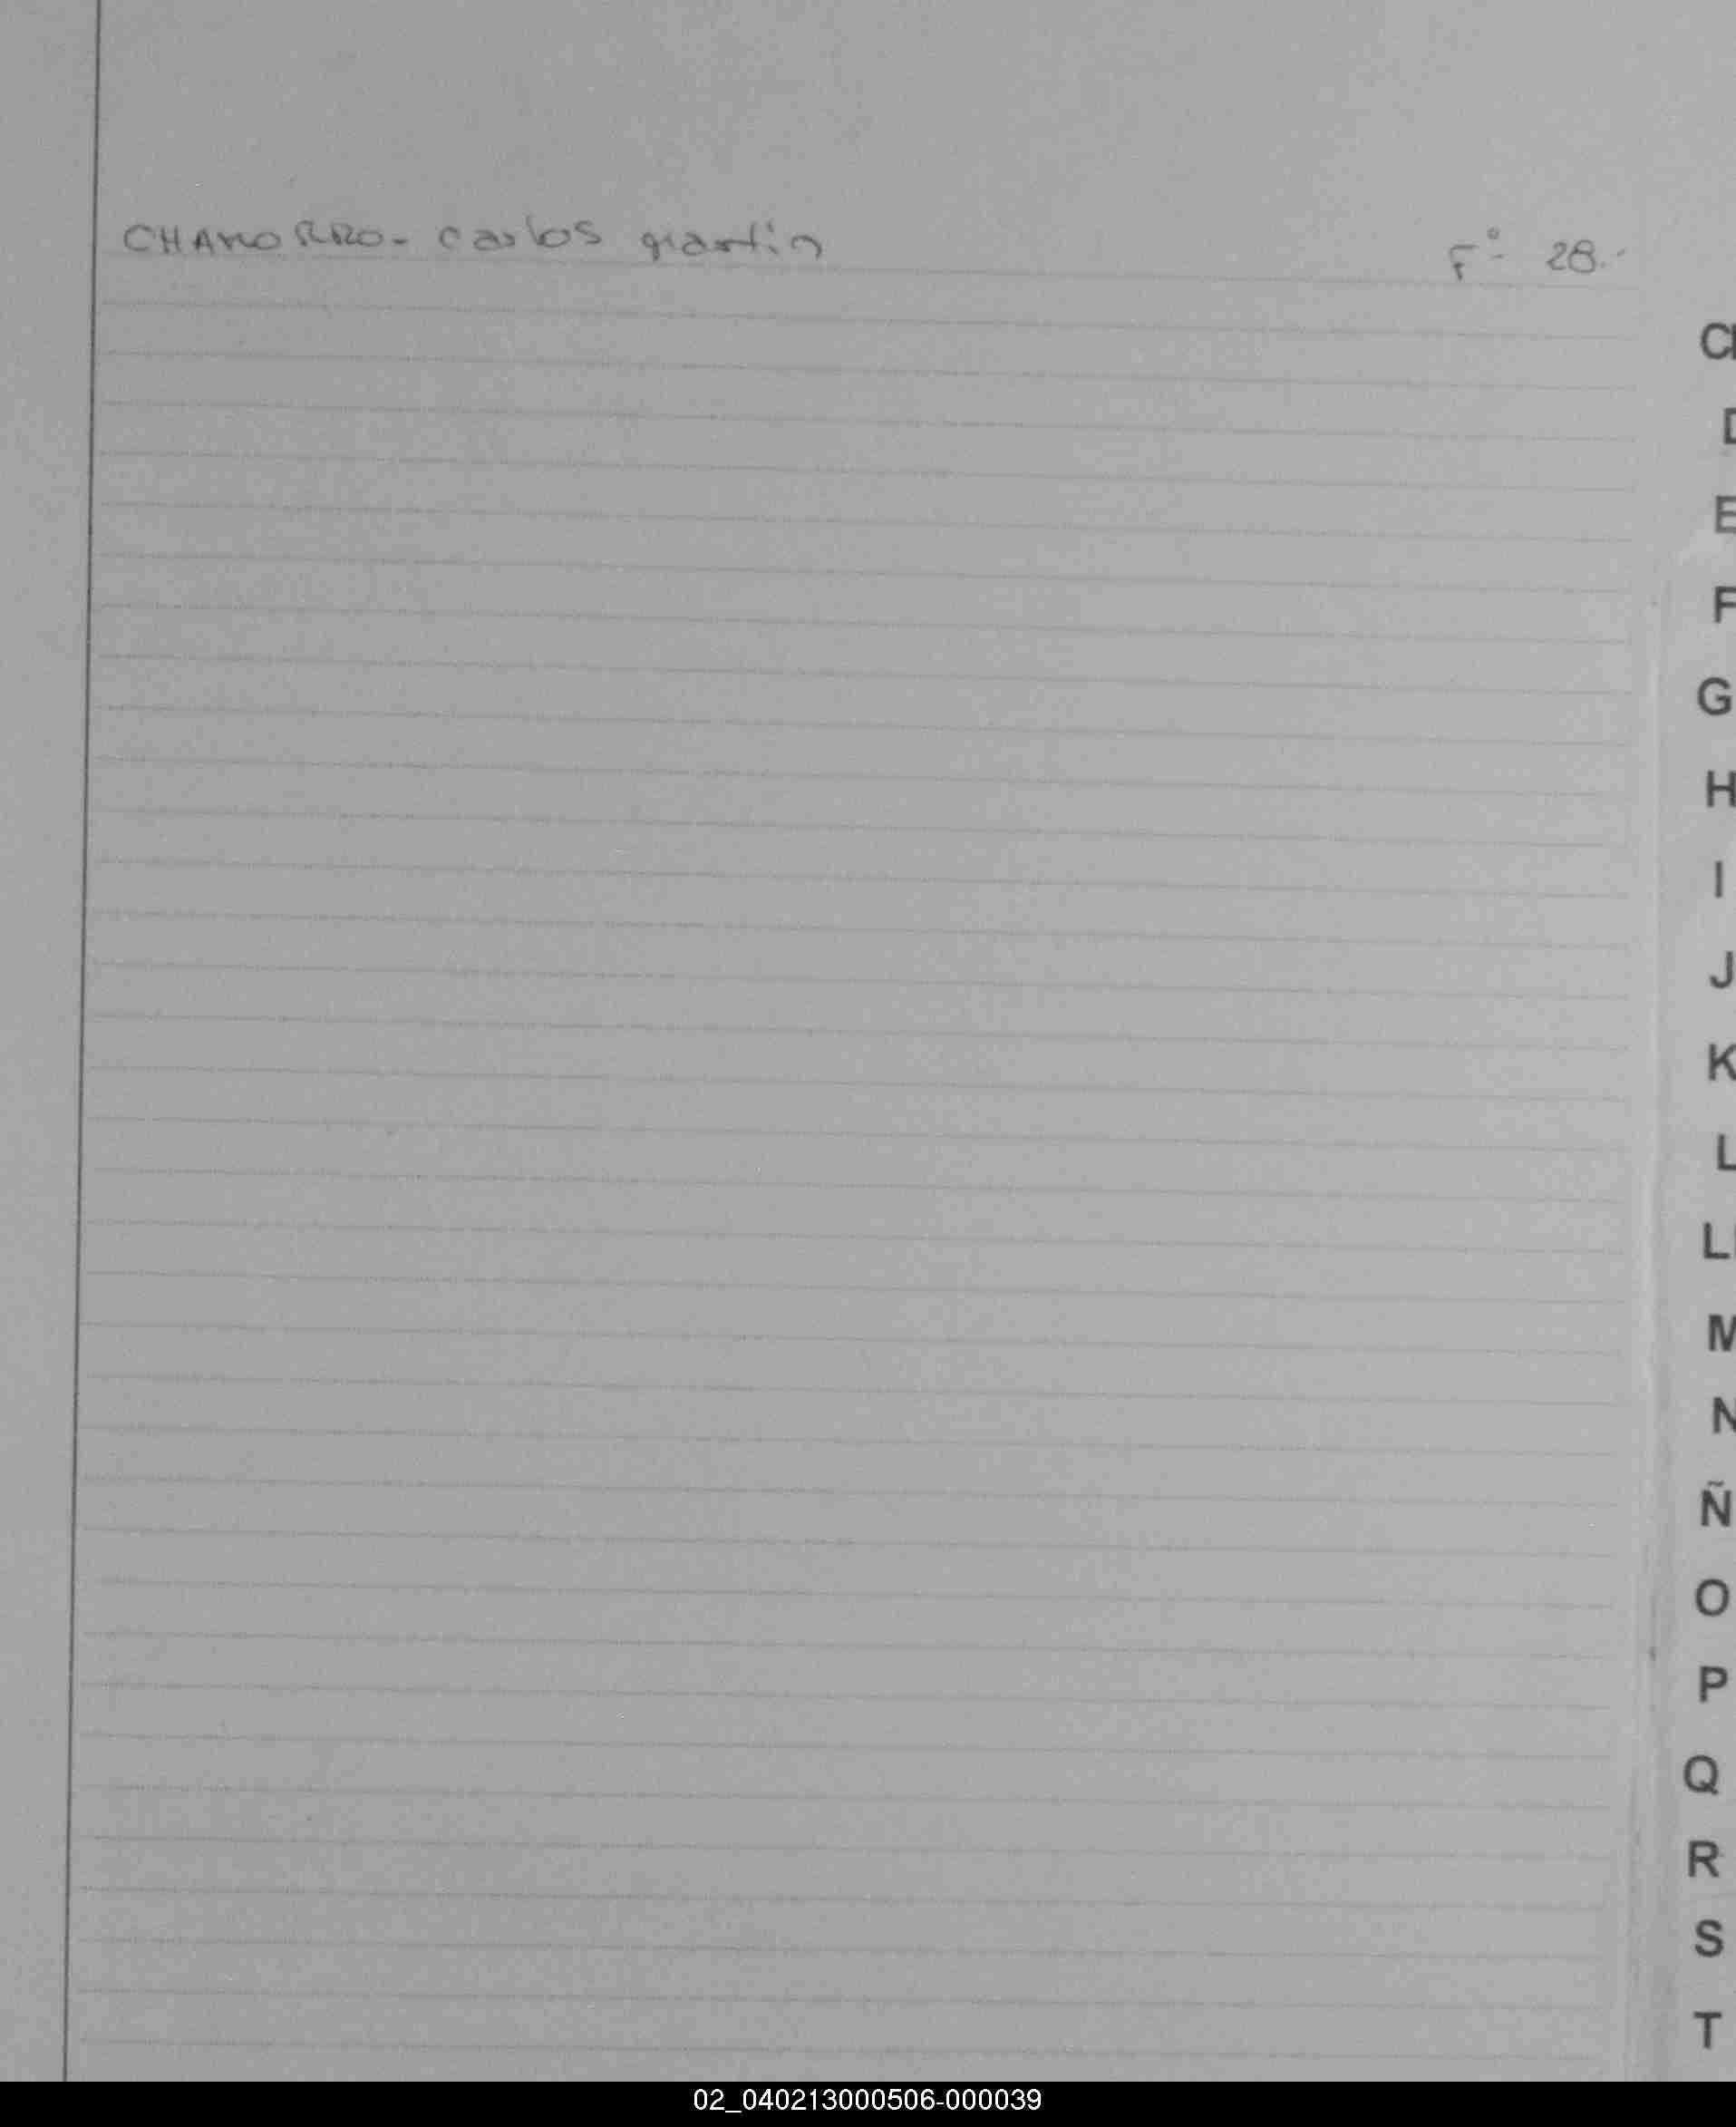 CHAMORRO- Carlos Martin F° 28.-
CH
D
E
F
G
H
I
J
K
L
LL
M
N
Ñ
O
P
Q
R
S
T
02_040213000506-000039